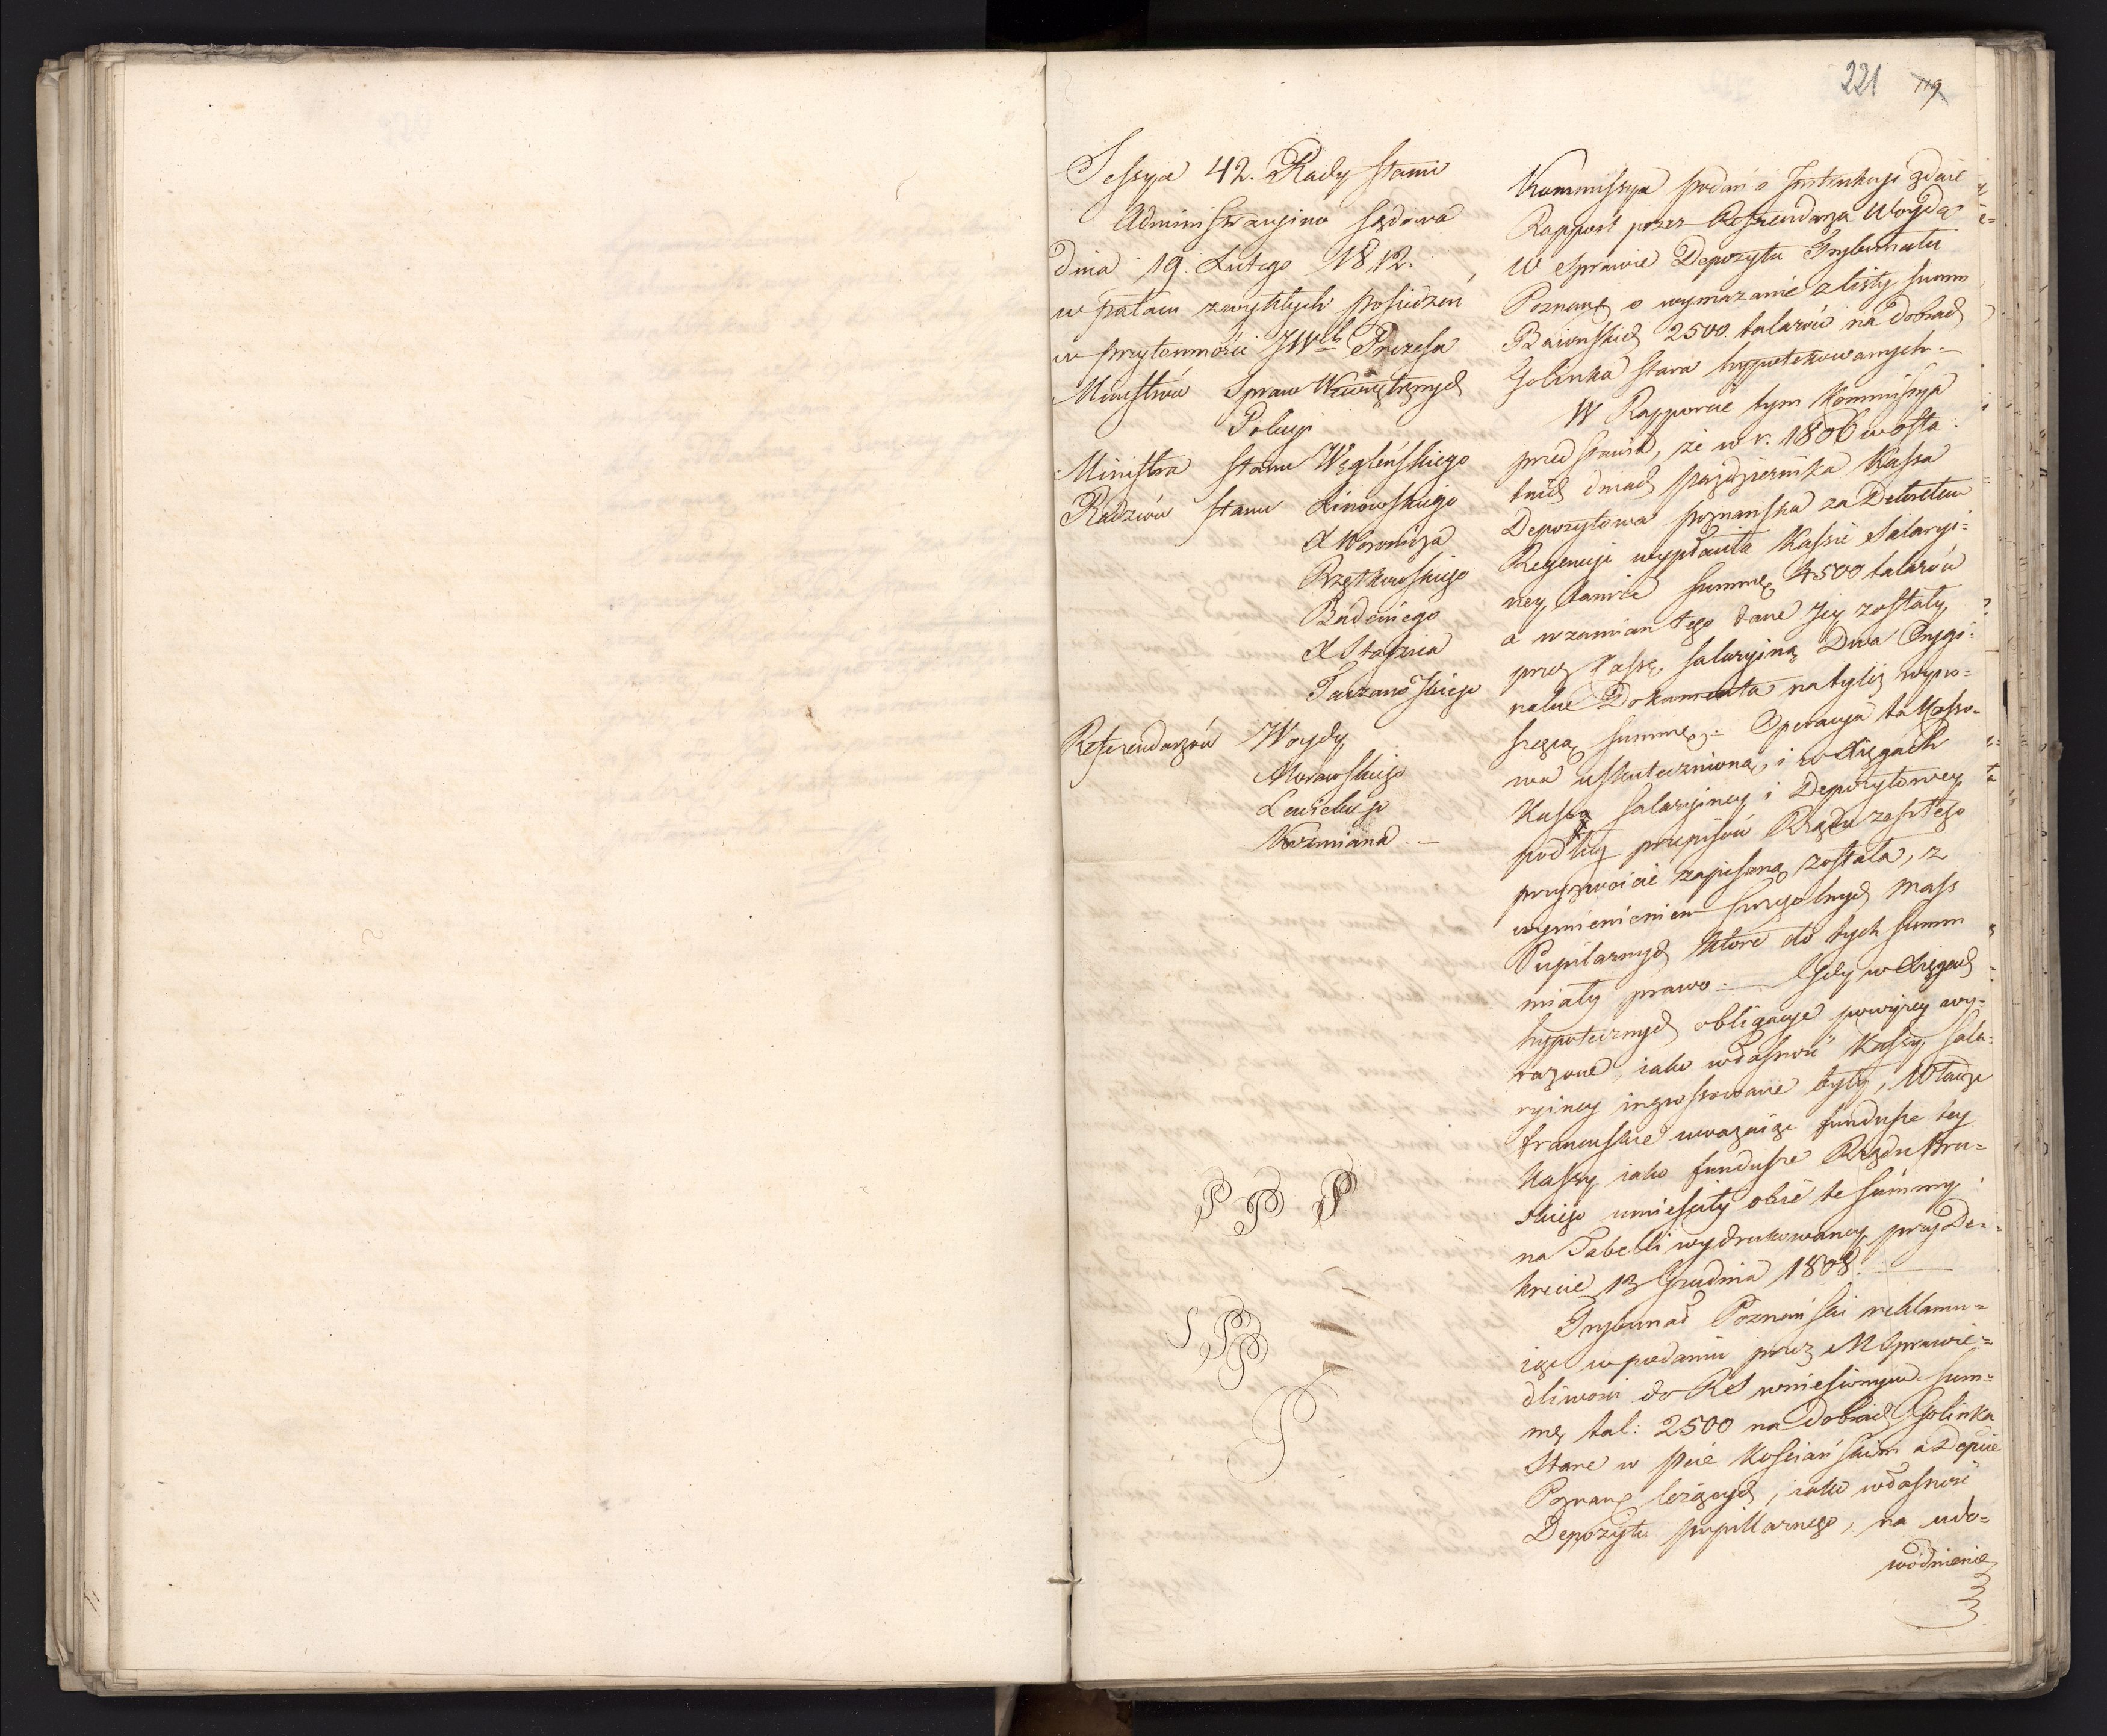 221 119
Sessya 42. Rady Stanu
Administracyino Sądowa
dnia 19 Lutego 1812.
w pałacu zwykłych posiedzeń
w przytomności JWch Prezesa
Ministrów Spraw Wewnętrznych
Policyi
Ministra Stanu Węgleńskiego
Radzców Stanu Linowskiego
X Woronicza
Rzętkowskiego
Badeniego
X Staszica
Tarzanowskiego
Referendarzów Woydy
Morawskiego
Lewickiego
Kozmiana. —
P P P
S P P
P
Kommissya podań i Instrukcyi zdaie
Rapport przez Referendarza Woydę
w Sprawie Depozytu Trybunału
Poznango o wymazanie z listy summ
Baiońskich 2500 talarów na dobrach
Golinka stara hyppotekowanych. —
W Rapporcie tym Kommissya
przedstawia, że w r. 1806 w osta:
tnich dniach Października Kassa
Depozytowa poznańska za Dekretem
Regencyi wypłaciła Kassie Salaryi:
ney tamże summę 4500 talarów
a wzamian tego dane Jey zostały
przez Kassę Salaryiną Dwa Orygi:
nalne Dokumenta na tyleż wyno=
szącą summę. — Operacya ta Kasso-
wa uskuteczniona, i w Xięgach
Kassy Salaryiney i Depozytowey
podług przepisów Rządu zeszłego
przyzwoicie zapisaną została, z
wymienieniem szczególnych Mass
Pupilarnych, które do tych summ
miały prawo. — Gdy w Xięgach
hyppotecznych obligacye powyżey wy=
rażone, iako własność Kassy Sala:
ryiney ingrossowane były, Władze
francuskie uważaiąc fundusze tey
Kassy iako fundusze Rządu Pru=
skiego umieściły obie te summy
na Tabelli wydrukowaney przy De=
krecie 13 Grudnia 1808. —
Trybunał Poznański reklamu=
iąc w podaniu przez M Sprawie=
dliwości do RS wniesionym sum=
mę tal: 2500 na dobrach Golinka
Stare w Pcie Kościańskim a Depcie
Poznang leżących, iako własność
Depozytu pupillarnego, na udo=
wodnienie